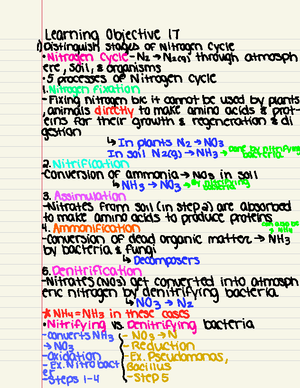 Learning Objective 17
1) Distinguish stages of Nitrogen Cycle
• Nitrogen cycle - N₂ → N₂(g) through atmosph
ere, soil, & organisms
• 5 processes of Nitrogen Cycle
1. Nitrogen Fixation
- Fixing nitrogen b/c it cannot be used by plants
, animals directly to make amino acids & prot-
eins for their growth & regeneration & di
gestion
↳ In plants N₂ → NO₃
In soil N₂(g) → NH₃ → done by nitrifying
bacteria
2. Nitrification
- Conversion of ammonia → NO₃ in soil
↳ NH₃ → NO₃ → by nitrifying
bacteria
3. Assimilation
- Nitrates from soil (in step 2) are absorbed
to make amino acids to produce proteins
4. Ammonification
can also be
- Conversion of dead organic matter → NH₃
by bacteria & fungi
↳ Decomposers
5. Denitrification
- Nitrates (NO₃) get converted into atmosph
eric nitrogen by denitrifying bacteria
↳ NO₃ → N₂
* NH₄ = NH₃ in these cases
• Nitrifying vs. Denitrifying bacteria
- converts NH₃
→ NO₃
- Oxidation
- Ex. Nitrobact
er
- Steps 1-4
- NO₃ → N
- Reduction
- Ex. Pseudomonas,
Bacillus
- Step 5